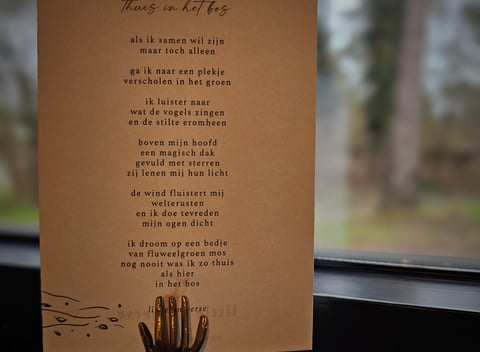 thuis in het bos
als ik samen wil zijn
maar toch alleen
ga ik naar een plekje
verscholen in het groen
ik luister naar
wat de vogels zingen
en de stilte eromheen
boven mijn hoofd
een magisch dak
gevuld met sterren
zij lenen mij hun licht
de wind fluistert mij
welterusten
en ik doe tevreden
mijn ogen dicht
ik droom op een bedje
van fluweelgroen mos
nog nooit was ik zo thuis
als hier
in het bos